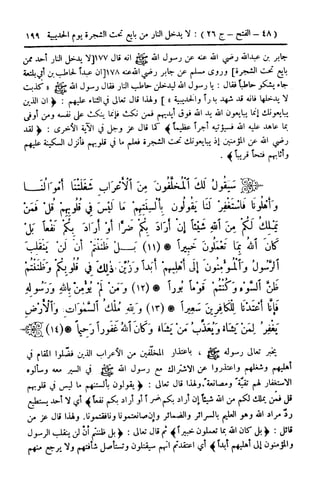 (٤٨ - الفتح - ج ٢٦) : لا يدخل النار من بايع تحت الشجرة يوم الحديبية ١٩٩
جابر بن عبدالله رضي الله عنه عن رسول الله ﷺ انه قال ١٧٧[لا يدخل النار أحد ممن
بايع تحت الشجرة] وروى مسلم عن جابر رضي الله عنه ١٧٨[ان عبداً لحاطب بن أبي بلتعة
جاء يشكو حاطباً فقال : يا رسول الله ليدخلن حاطب النار فقال رسول الله ﷺ « كذبت
لا يدخلها فانه قد شهد بدراً والحديبية » ] ولهذا قال تعالى في الثناء عليهم : ﴿ ان الذين
يبايعونك إنما يبايعون الله يد الله فوق أيديهم فمن نكث فإنما ينكث على نفسه ومن أوفى
بما عاهد عليه الله فسيؤتيه أجراً عظيماً﴾ كما قال عز وجل في الآية الأخرى : ﴿ لقد
رضي الله عن المؤمنين إذ يبايعونك تحت الشجرة فعلم ما في قلوبهم فأنزل السكينة عليهم
وأثابهم فتحاً قريباً﴾ .
سَيَقُولُ لَكَ الْمُخَلَّفُونَ مِنَ الْأَعْرَابِ شَغَلَتْنَا أَمْوَالُنَا
وَأَهْلُونَا فَاسْتَغْفِرْ لَنَا يَقُولُونَ بِأَلْسِنَتِهِمْ مَا لَيْسَ فِي قُلُوبِهِمْ قُلْ فَمَنْ
يَمْلِكُ لَكُمْ مِنَ اللَّهِ شَيْئاً إِنْ أَرَادَ بِكُمْ ضَرّاً أَوْ أَرَادَ بِكُمْ نَفْعاً بَلْ
كَانَ اللَّهُ بِمَا تَعْمَلُونَ خَبِيراً * (١١) بَلْ ظَنَنْتُمْ أَنْ لَنْ يَنْقَلِبَ
الرَّسُولُ وَالْمُؤْمِنُونَ إِلَى أَهْلِيهِمْ أَبَداً وَزُيِّنَ ذَلِكَ فِي قُلُوبِكُمْ وَظَنَنْتُمْ
ظَنَّ السَّوْءِ وَكُنْتُمْ قَوْماً بُوراً * (١٢) وَمَنْ لَمْ يُؤْمِنْ بِاللَّهِ وَرَسُولِهِ
فَإِنَّا أَعْتَدْنَا لِلْكَافِرِينَ سَعِيراً * (١٣) وَلِلَّهِ مُلْكُ السَّمَوَاتِ وَالْأَرْضِ
يَغْفِرُ لِمَنْ يَشَاءُ وَيُعَذِّبُ مَنْ يَشَاءُ وَكَانَ اللَّهُ غَفُوراً رَحِيماً * (١٤)
يخبر تعالى رسوله ﷺ ، باعتذار المخلّفين من الأعراب الذين فضّلوا المقام في
أهليهم وشغلهم واعتذروا عن الاشتراك مع رسول الله ﷺ في السير معه وسألوه
الاستغفار لهم تقيّة ومصانعة. ولهذا قال تعالى : ﴿ يقولون بألسنتهم ما ليس في قلوبهم
قل فمن يملك لكم من الله شيئاً إن أراد بكم ضراً أو أراد بكم نفعاً﴾ أي لا أحد يستطيع
ردّ مراد الله وهو العليم بالسرائر والضمائر وإن صانعتمونا ونافقتمونا. ولهذا قال عز من
قائل: ﴿ بل كان الله بما تعملون خبيراً﴾ ثم قال تعالى : ﴿ بل ظننتم أن لن ينقلب الرسول
والمؤمنون إلى أهليهم أبداً﴾ أي اعتقدتم انهم سيقتلون وتستأصل شأفتهم ولا يرجع منهم